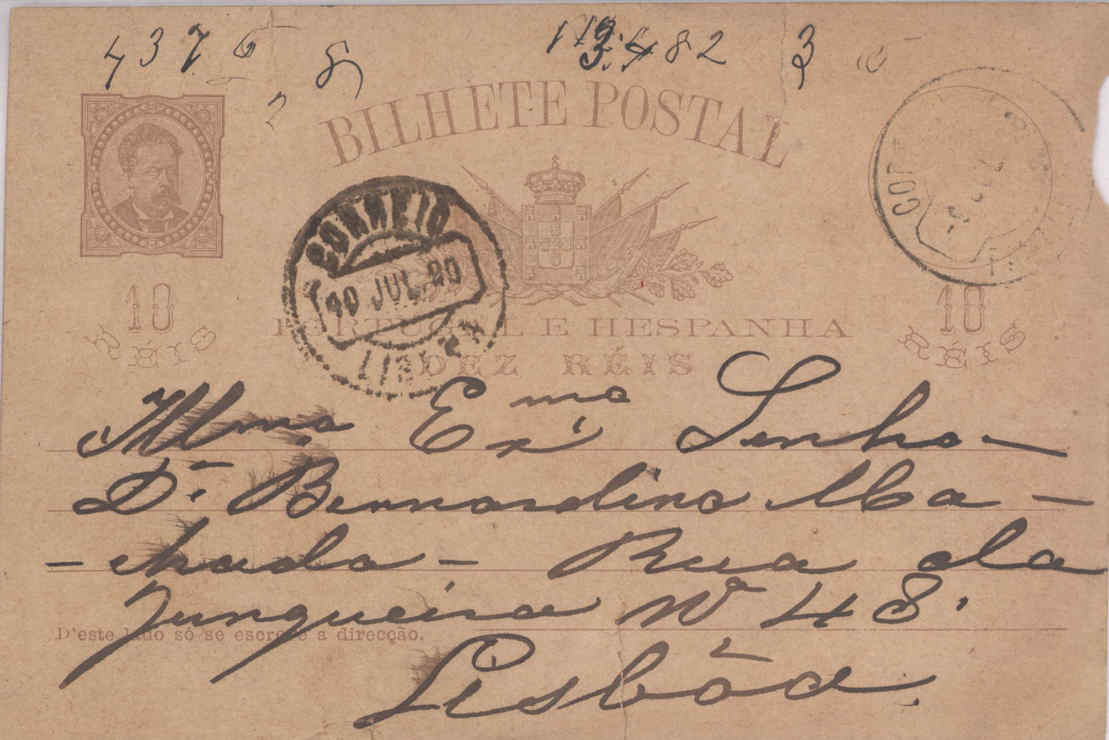 4376 8
3.482 3
BILHETE POSTAL
CORREIO
10 JUL. 90
LISBOA
COT
10
RÉIS
PORTUGAL E HESPANHA
DEZ RÉIS
10
RÉIS
Illmo Exmo Senho-
Dr. Bernardino Ma-
-chado - Rua da
Junqueira Nº 48.
D'este lado só se escreve a direcção.
Lisbôa.